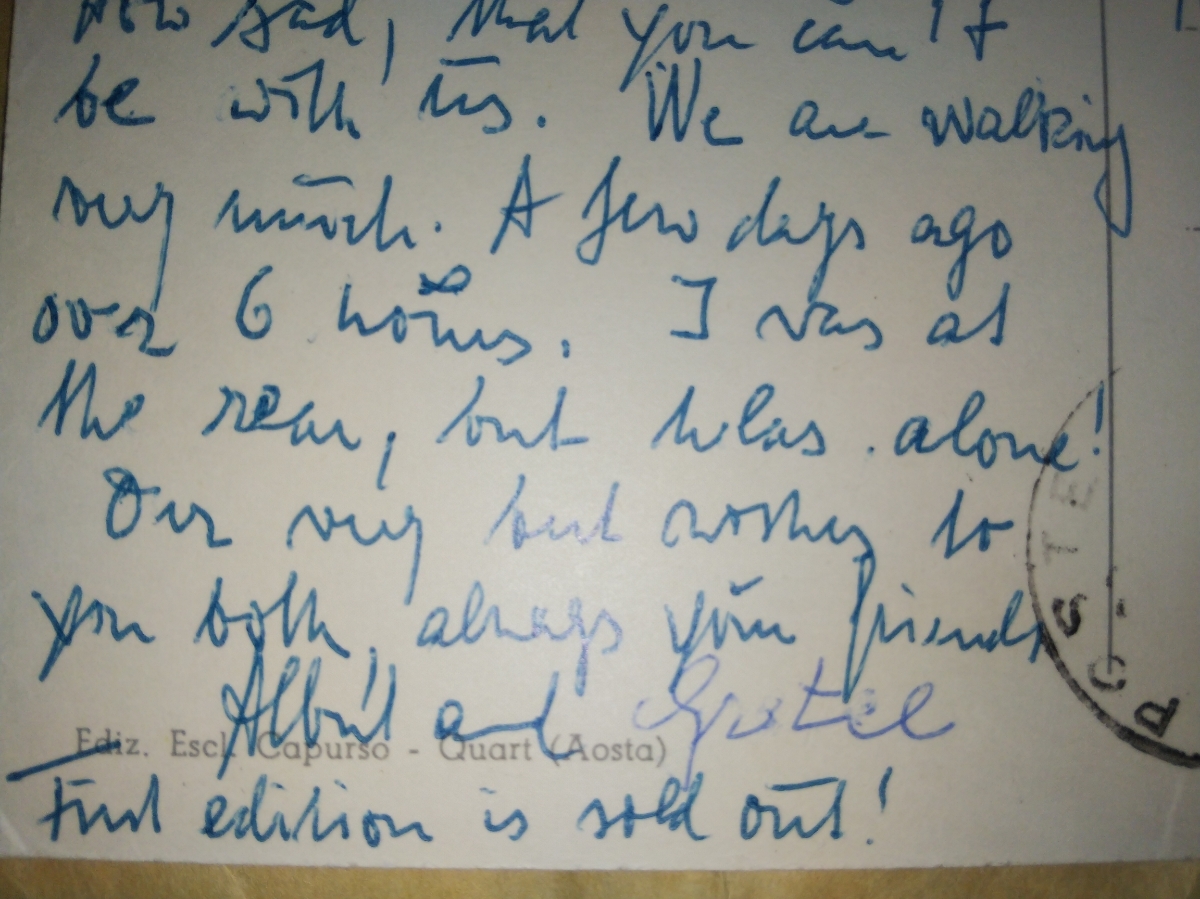 How sad, that you can't
be with us. We are walking
very much. A few days ago
over 6 hours. I was at
the rear, but alone!
Our very best wishes to
you both, always your friends
and Gretel
Ediz. Escl. Capurso - Quart (Aosta)
First edition is sold out!
POSTE